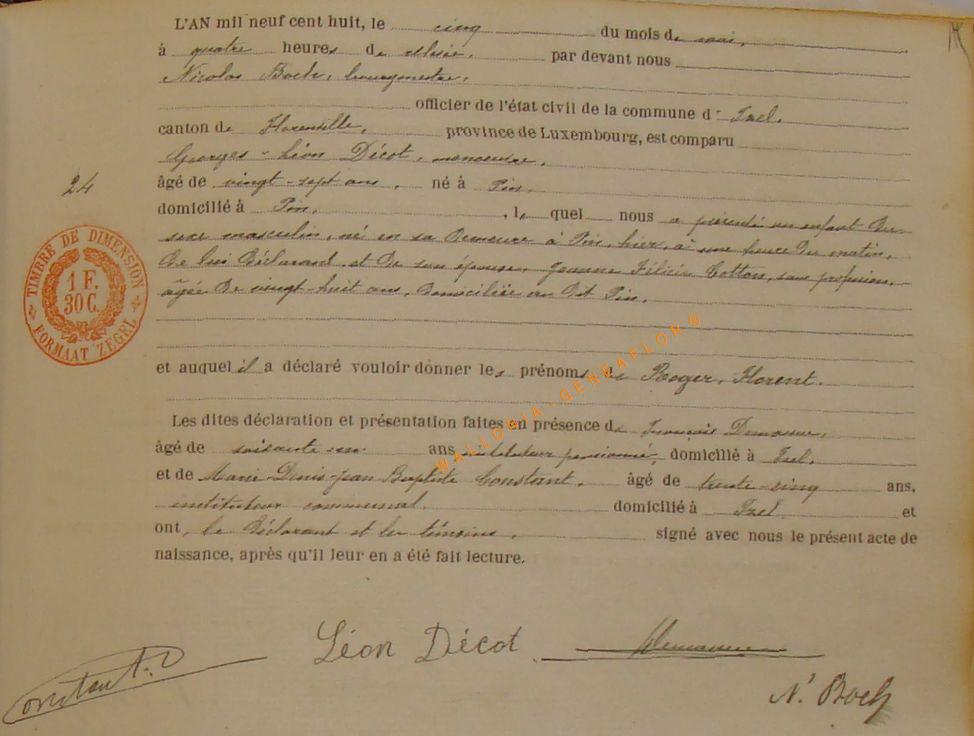 L'AN mil neuf cent huit, le cinq du mois de mai,
à quatre heures de relevée, par devant nous
Nicolas Boch, bourgmestre,
officier de l'état civil de la commune d' Izel,
canton de Florenville, province de Luxembourg, est comparu
Georges-Léon Décot, manoeuvre,
24
âgé de vingt-sept ans, né à Pin,
domicilié à Pin, le quel nous a présenté un enfant du
sexe masculin, né en sa demeure à Pin, hier, à une heure du matin,
de lui déclarant et de son épouse, Jeanne Félicie Cotton, sans profession,
âgée de vingt-huit ans, domiciliée au dit Pin.
TIMBRE DE DIMENSION
1 F.
30 C.
FORMAAT ZEGEL
et auquel il a déclaré vouloir donner les prénoms de Roger, Florent.
WALLONIA-GENEAFLOR©
Les dites déclaration et présentation faites en présence de François
âgé de soixante ans instituteur pensionné, domicilié à Izel,
et de Marie-Denis-Jean Baptiste Constant, âgé de trente-cinq ans,
instituteur communal, domicilié à Izel et
ont, le déclarant et les témoins, signé avec nous le présent acte de
naissance, après qu'il leur en a été fait lecture.
Léon Décot
Constant.
N. Boch